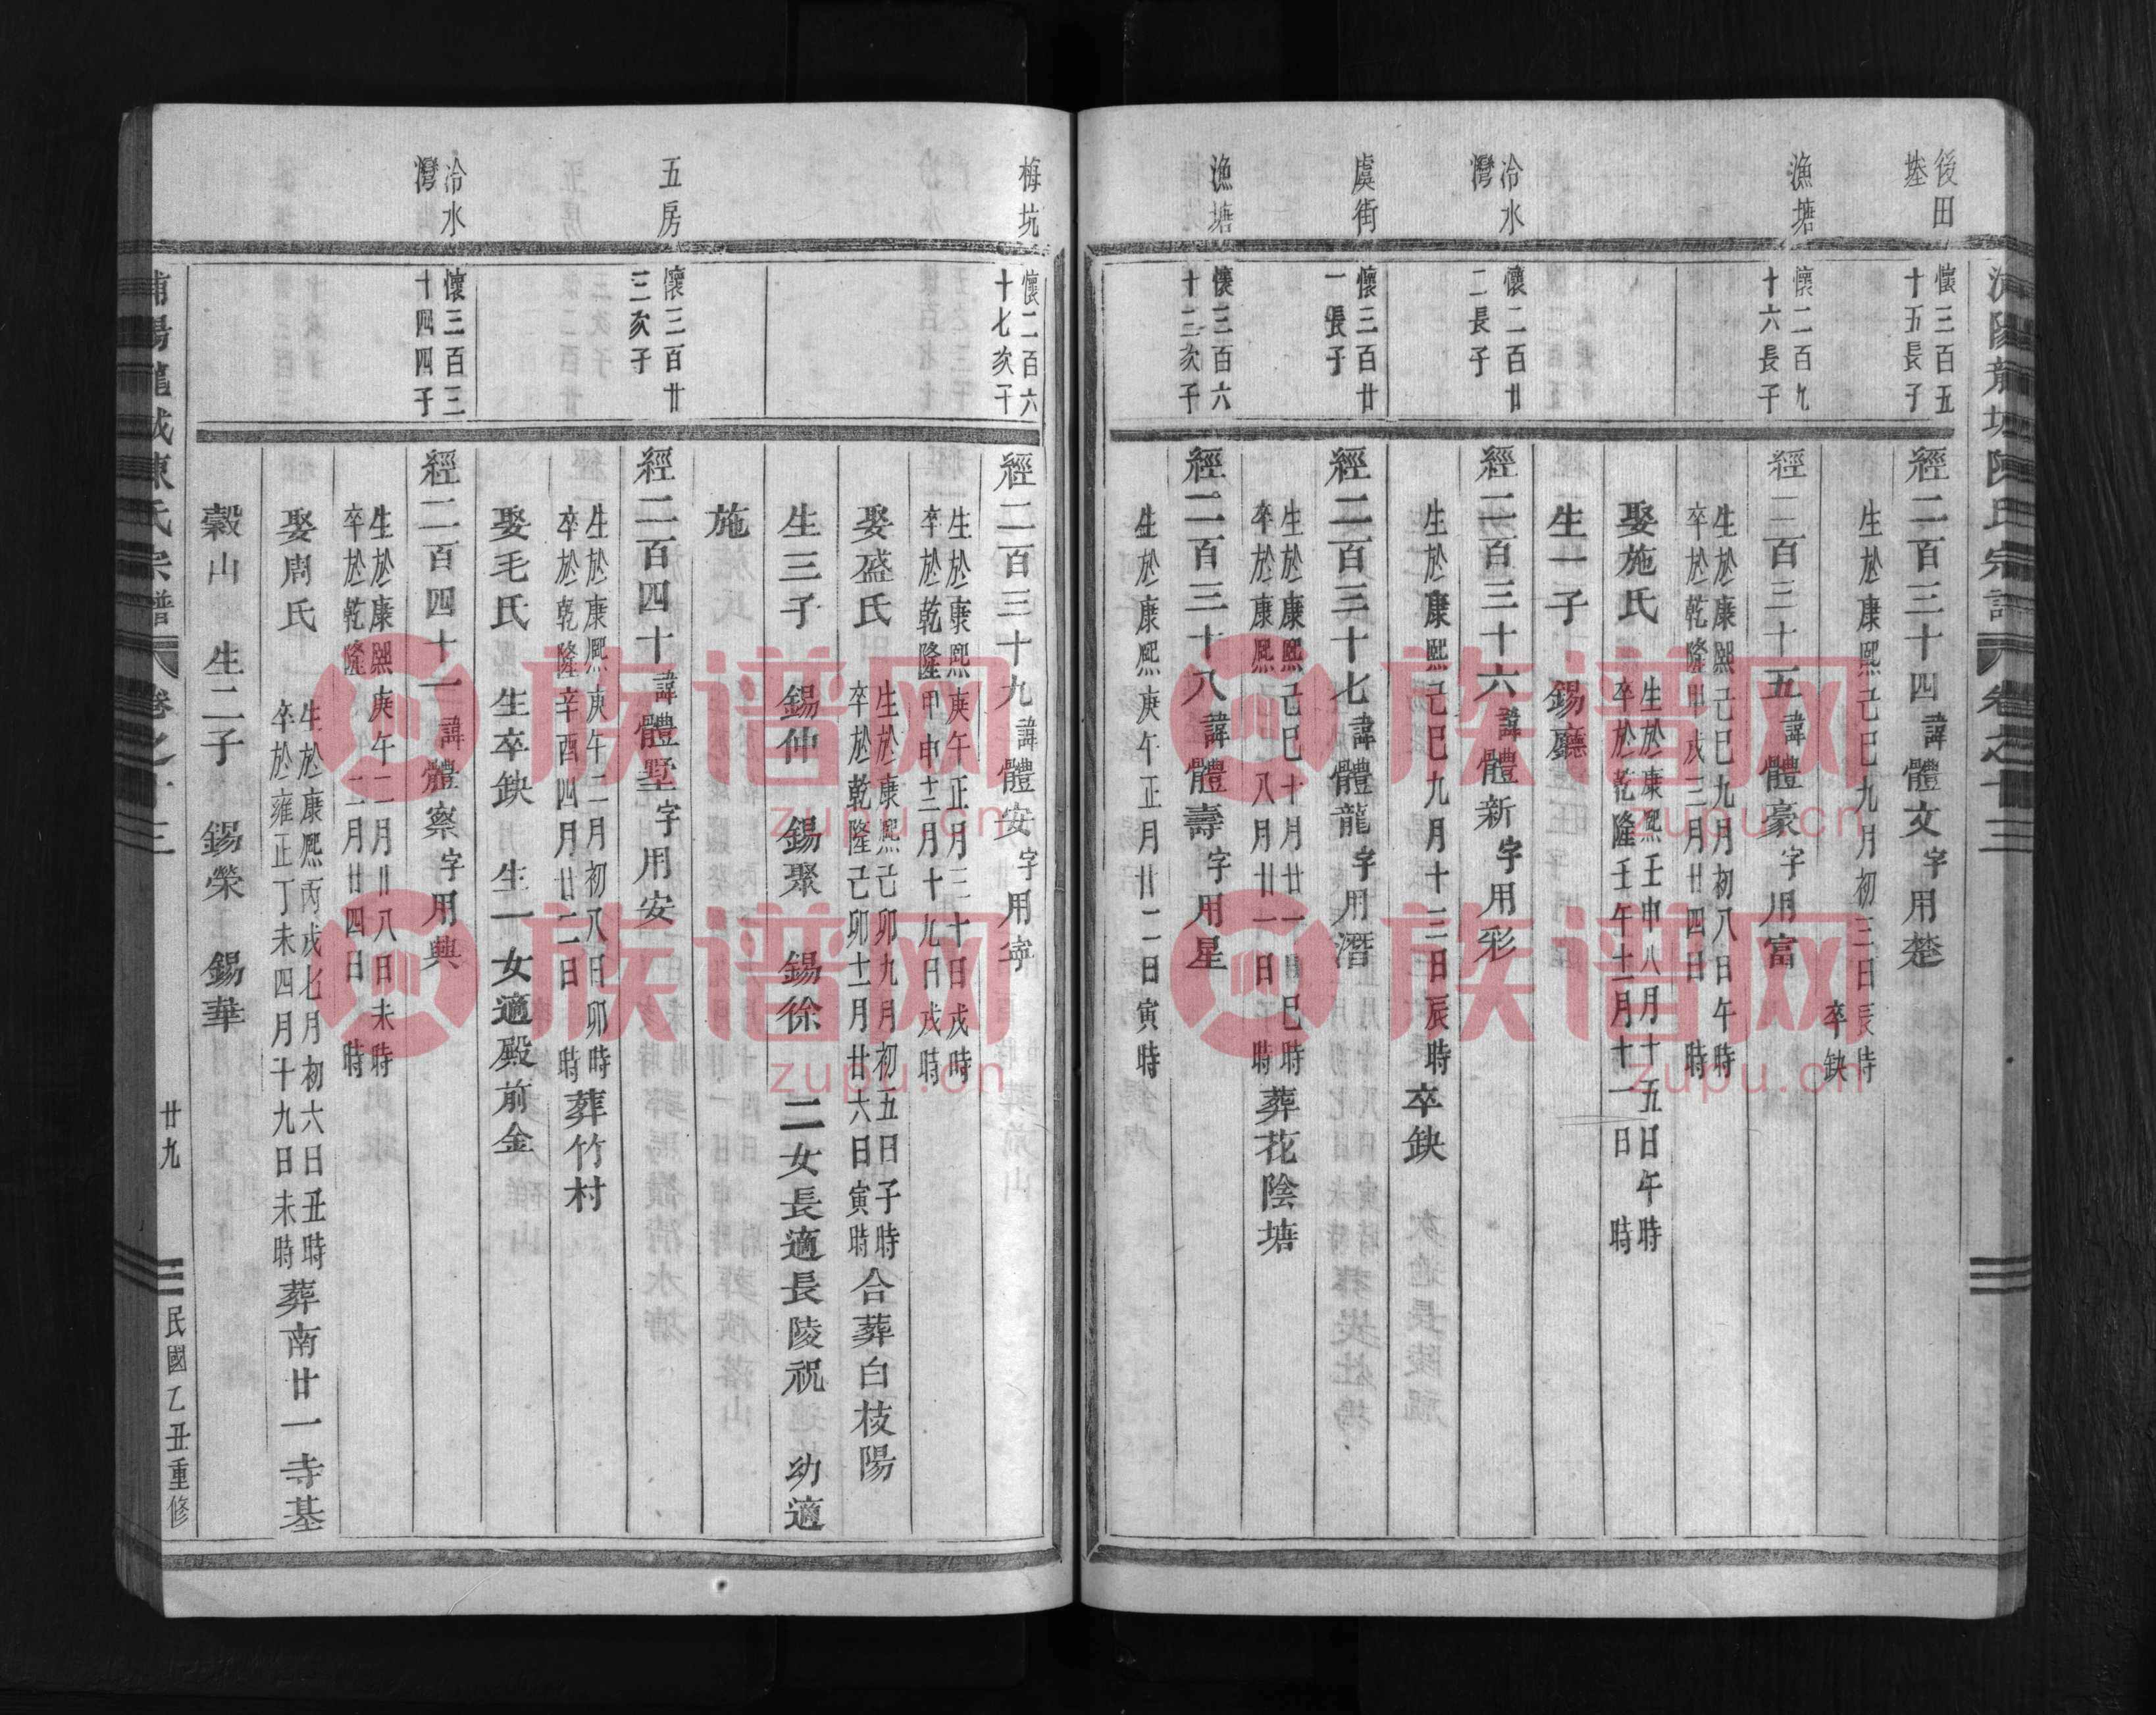 後田
塍
懷三百五
十五長子
經二百三十四諱體文字用楚
生於康熙己巳九月初三日辰時
卒缺
漁塘
懷二百九
十六長子
經二百三十五諱體豪字用富
生於康熙己巳九月初八日午時
卒於乾隆甲戌三月廿四日 時
娶施氏
生於康熙壬申八月十五日午時
卒於乾隆壬午十二月十一日 時
生一子 錫廳
冷水
灣
懷二百廿
二長子
經二百三十六諱體新字用彩
生於康熙己巳九月十三日辰時卒缺
虞街
懷三百廿
一長子
經二百三十七諱體龍字用潛
生於康熙己巳十月廿一日巳時
卒於康熙 八月廿一日 時
葬花陰塘
漁塘
懷三百六
十三次子
經二百三十八諱體壽字用星
生於康熙庚午正月廿二日寅時
浦陽龍城陳氏宗譜
卷之十三
梅坑
懷二百六
十七次子
經二百三十九諱體安字用寧
生於康熙庚午正月三十日戌時
卒於乾隆甲申十二月十九日戌時
娶盛氏
生於康熙己卯九月初五日子時
卒於乾隆己卯十一月廿六日寅時
合葬白枝陽
生三子 錫仲 錫聚 錫徐 二女長適長陵祝 幼適
施
五房
懷三百廿
三次子
經二百四十諱體墅字用安
生於康熙庚午二月初八日卯時
卒於乾隆辛酉四月廿二日 時
葬竹村
娶毛氏 生卒缺 生一女適殿前金
冷水
灣
懷三百三
十四四子
經二百四十一諱體察字用興
生於康熙庚午二月廿八日未時
卒於乾隆 二月廿四日 時
娶周氏
生於康熙丙戌七月初六日丑時
卒於雍正丁未四月十九日未時
葬南廿一寺基
穀山 生二子 錫榮 錫華
浦陽龍城陳氏宗譜
卷之十三
廿九
民國乙丑重修
族谱网
zupu.cn
族谱网
zupu.cn
族谱网
zupu.cn
族谱网
zupu.cn